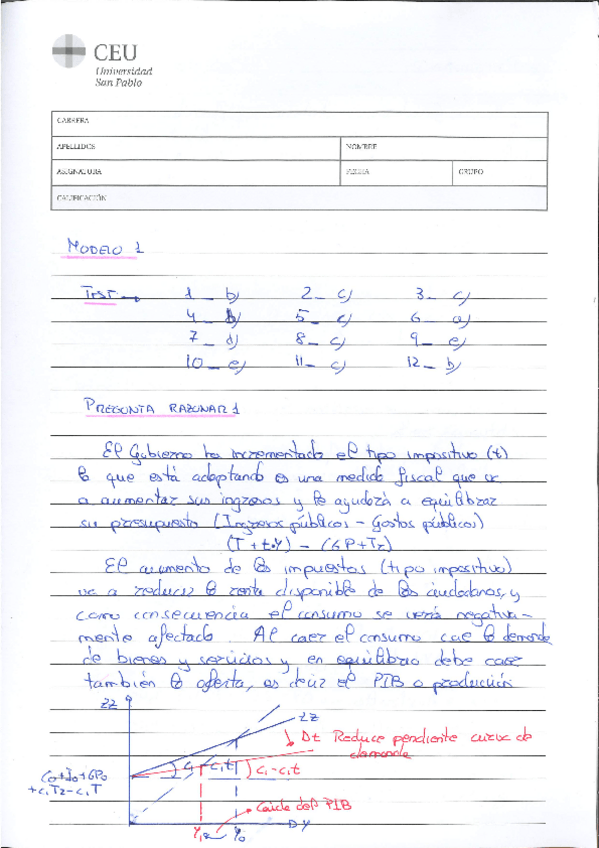 CEU
Universidad
San Pablo
CARRERA
APELLIDOS NOMBRE
ASIGNATURA FECHA GRUPO
CALIFICACIÓN
MODELO 1
TEST → 1_ b) 2_ c) 3_ c)
4_ b) 5_ c) 6_ a)
7_ d) 8_ c) 9_ e)
10_ e) 11_ c) 12_ b)
PREGUNTA RAZONAR 1
El Gobierno ha incrementado el tipo impositivo (t)
lo que está adoptando es una medida fiscal que va
a aumentar sus ingresos y le ayudará a equilibrar
su presupuesto (Ingresos públicos - Gastos públicos)
(T + t·Y) - (GP+Tz)
El aumento de los impuestos (tipo impositivo)
va a reducir la renta disponible de los ciudadanos, y
como consecuencia el consumo se verá negativa-
mente afectado. Al caer el consumo cae la demanda
de bienes y servicios y en equilibrio debe caer
también la oferta, es decir el PIB o producción
ZZ
ZZ
Δt Reduce pendiente curva de
demanda
C0+I0+GP0
+c1Tz-c1T
c1-c1t
c1-c1t
Caída del PIB
Y1 ← Y0 DY